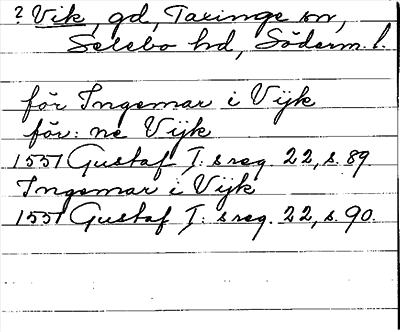 ? Vik, gd, Taxinge sn,
Selebo hd, Söderm. l.
för Ingemar i Vijk
för: ne Vijk
1551 Gustaf I: s reg. 22, s. 89.
Ingemar i Vijk
1551 Gustaf I: s reg. 22, s. 90.